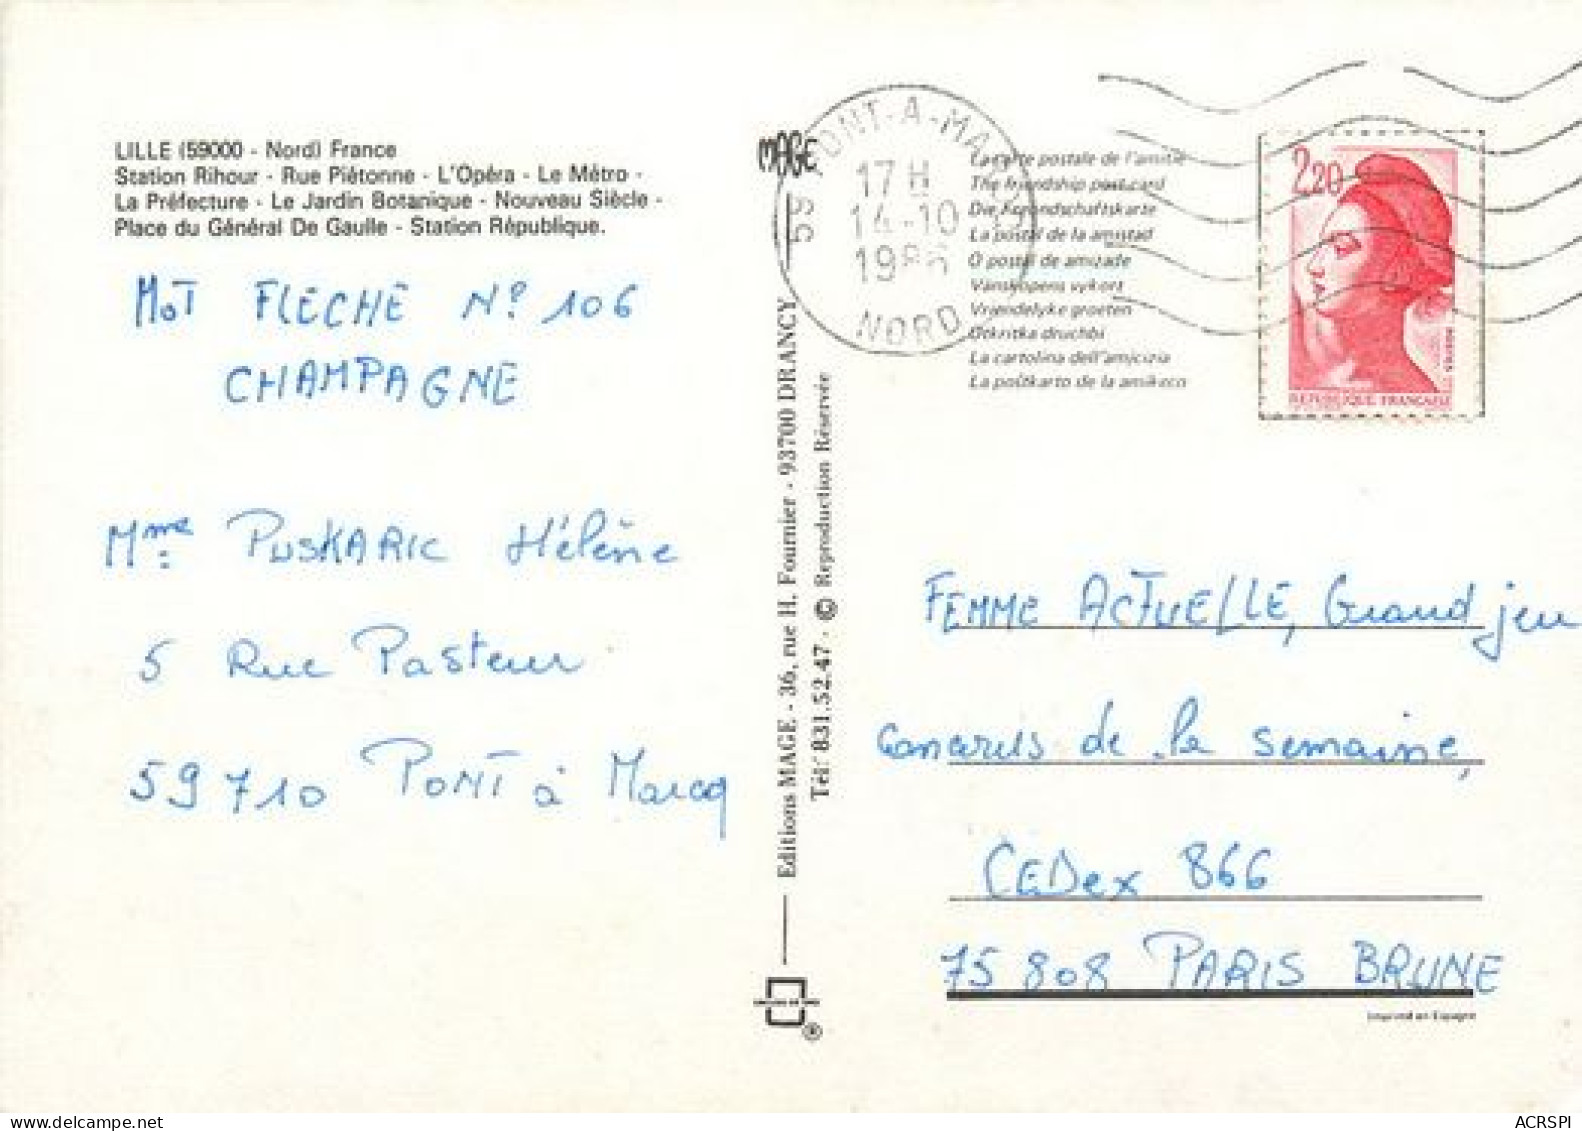 LILLE (59000 - Nord) France
Station Rihour - Rue Piètonne - L'Opéra - Le Métro -
La Préfecture - Le Jardin Botanique - Nouveau Siècle -
Place du Général De Gaulle - Station République.
MOT FLECHE N° 106
CHAMPAGNE
Mme PUSKARIC Hélène
5 Rue Pasteur
59710 PONT à Marcq
Editions MAGE - 36, rue H. Fournier - 93700 DRANCY
Tél: 831.52.47 - © Reproduction Réservée
MAGE
59 PONT-A-MA
17 H
14-10
1986
NORD
La carte postale de l'amitié
The friendship postcard
Die Freundschaftskarte
La postal de la amistad
O postal de amizade
Vänskapens vykort
Vriendelyke groeten
Otkritka druchbi
La cartolina dell'amicizia
La poŝtkarto de la amikeco
2,20
REPUBLIQUE FRANÇAISE
FEMME ACTUELLE, Grand jeu
Canevas de la semaine,
CEDex 866
75 808 PARIS BRUNE
Imprimé en Espagne
®
ACRSPI